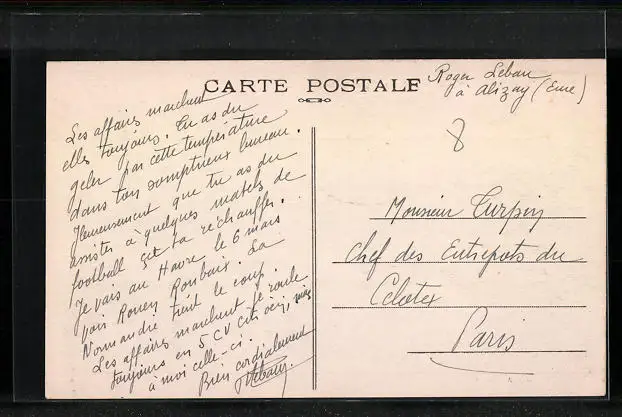 CARTE POSTALE
Roger Lebau
à Alizay (Eure)
8
Les affaires marchent
elles toujours. Tu as du
geler par cette température
dans ton somptueux bureau.
Heureusement que tu as du
assister à quelques matchs de
football çà t'a réchauffer.
Je vais au Havre le 6 mars
voir Rouen Roubaix. La
Normandie tient le coup.
Les affaires marchent je roule
toujours en 5 CV Citroën, mais
à moi celle-ci.
Bien cordialement
Monsieur Turpin
Chef des Entrepots du
Celotex
Paris